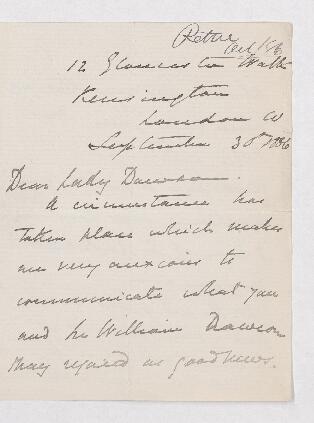 Oct 1st/86
12 Gloucester Walk
Kensington
London W
September 30th 1886
Dear Lady Dawson.
A circumstance has
taken place which makes
me very anxious to
communicate what you
and Sir William Dawson
may regard as good news.